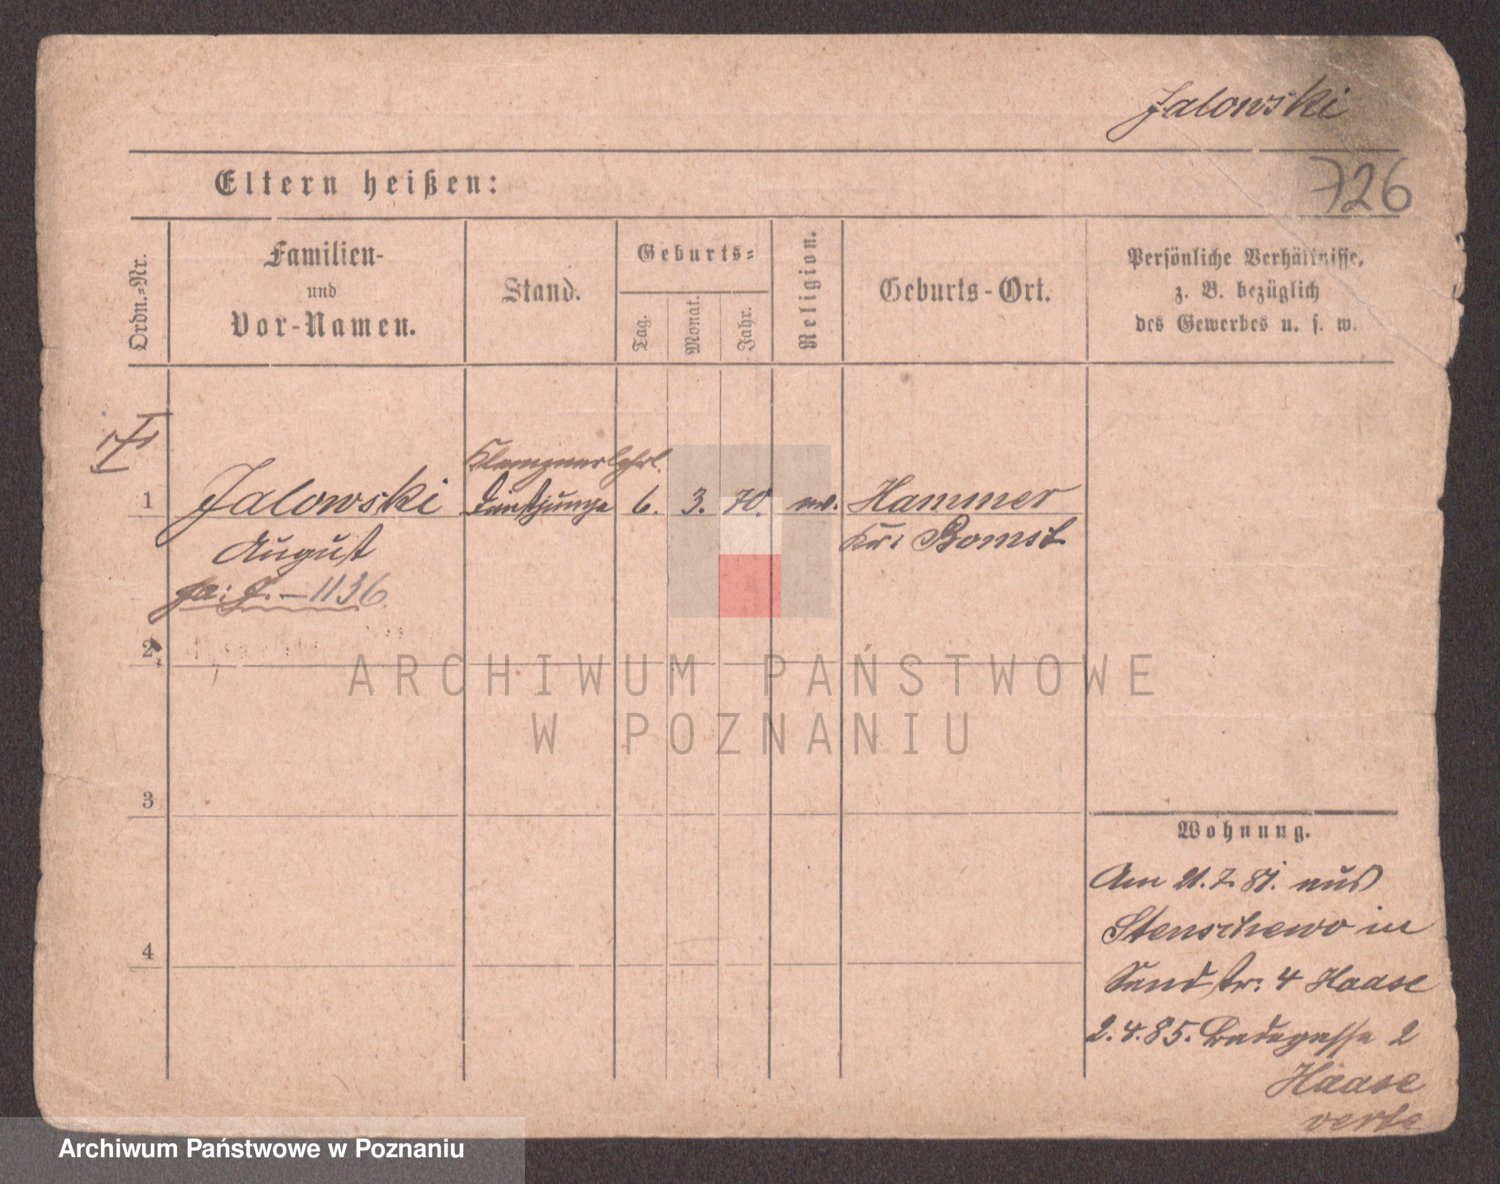 Jalowski
726
Eltern heißen:
Ordn.-Nr.
Familien-
und
Vor-Namen.
Stand.
Geburts-
Tag.
Monat.
Jahr.
Religion.
Geburts-Ort.
Persönliche Verhältnisse,
z. B. bezüglich
des Gewerbes u. s. w.
Klempnerlehrl.
1 Jalowski 6. 3. 70. Hammer
August Kr: Bomst
J. - 1136
2
ARCHIWUM PAŃSTWOWE
W POZNANIU
3
Wohnung.
Am 21.7.81. aus
Stenschewo in
Sandstr: 4 Haase
4
2.4.85. Badegasse 2
Haase
verte
Archiwum Państwowe w Poznaniu